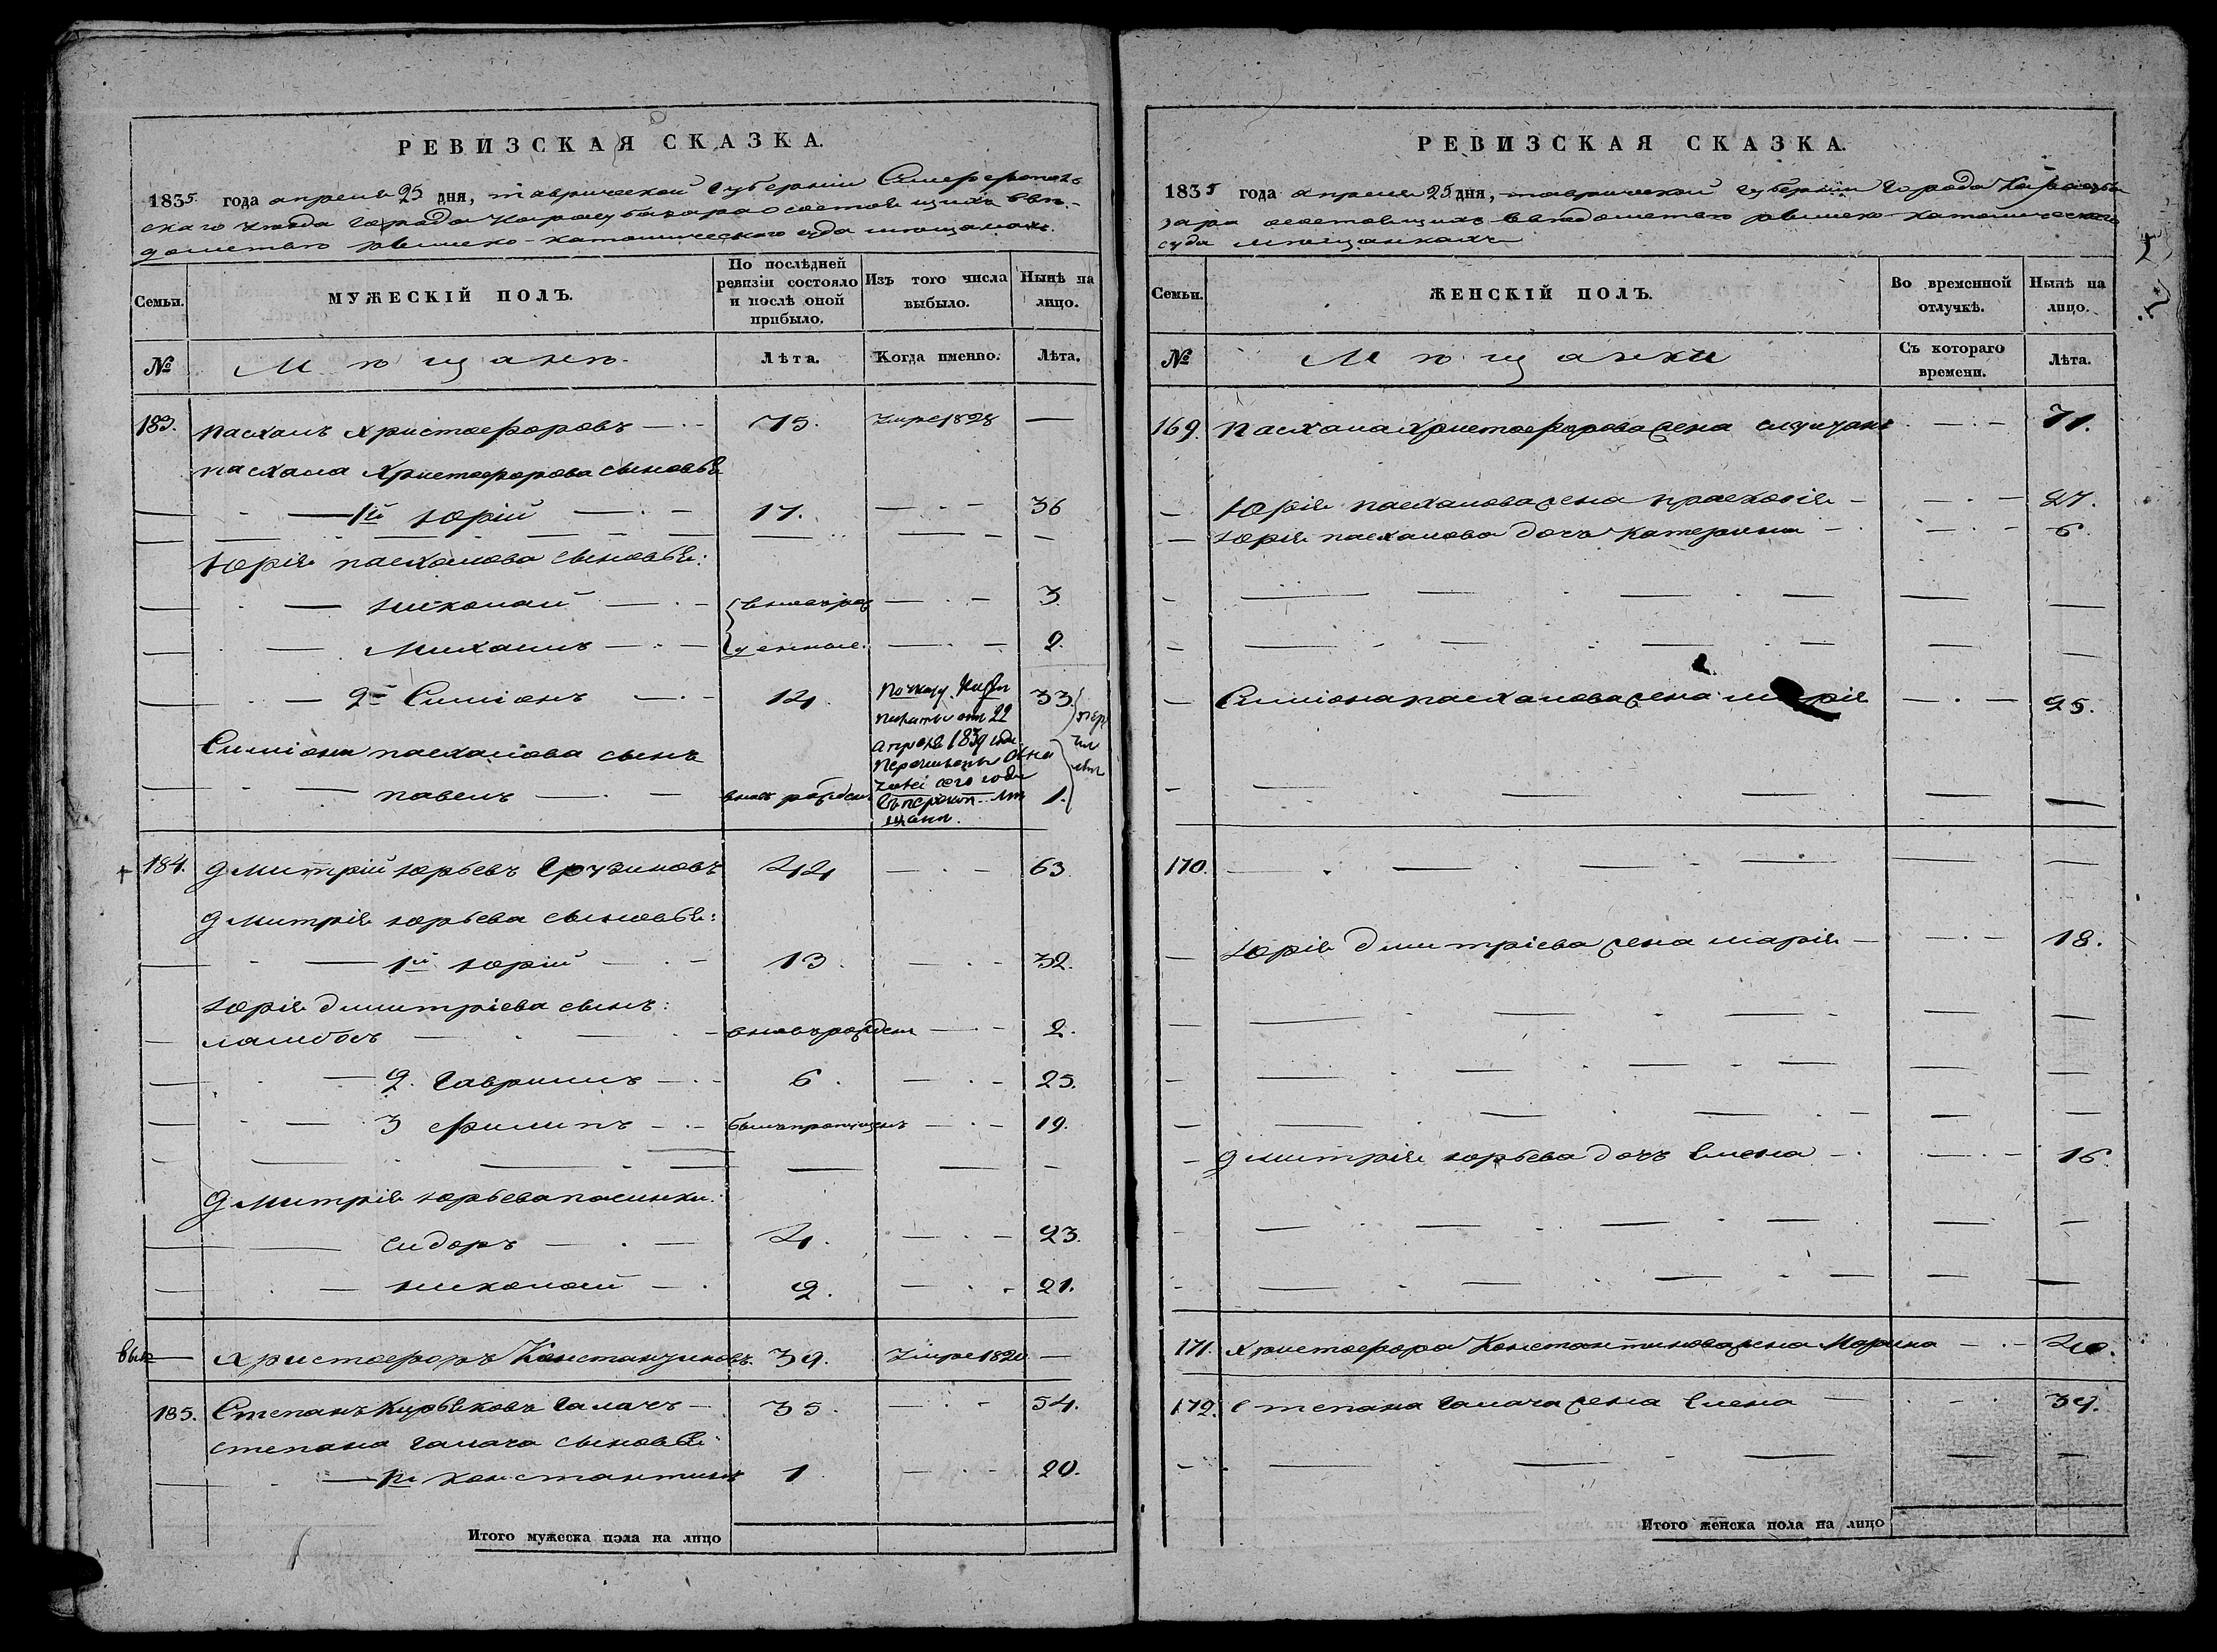 РЕВИЗСКАЯ СКАЗКА.
1835 года апреля 25 дня, таврической губернии Симферополь
скаго уезда города Карасубазара о состоящихъ въ вѣ-
домстве римско-католическаго суда мещанахъ.
Семьи. МУЖЕСКІЙ ПОЛЪ. По послѣдней ревизіи состояло и послѣ оной прибыло. Изъ того числа выбыло. Нынѣ на лицо.
№ Мѣщанѣ. Лѣта. Когда именно. Лѣта.
183. Пасхалъ Христофоровъ — 75. умре 1828 —
Пасхала Христофорова сыновья
1й Юрій 17. — 36
Юрія Пасхалова сыновья:
Николай вновь рож 3.
Михаилъ денные. 2.
2й Симіонъ 14. По указу Казен 33.
палаты отъ 22
апреля 1839 года
Симіона Пасхалова сынъ
Павелъ вновь рожден 1.
сего года
щани.
184. Дмитрій Юрьевъ Грузиновъ 44 — 63
Дмитрія Юрьева сыновья:
1й Юрій 13. — 32.
Юрія Дмитріева сынъ:
вновь рожден — 2.
2. Гаврилъ 6. — 25.
3 Филипъ былъ пропущенъ — 19.
Дмитрія Юрьева пасынки:
Сидоръ 4. — 23.
Николай 2. — 21.
Христофоръ Константиновъ. 39. умре 1820 —
185. Степанъ Галачъ — 35. — 54.
Степана Галача сыновья
1й Константинъ 1 — 20.
Итого мужеска пола на лицо
РЕВИЗСКАЯ СКАЗКА.
1835 года апреля 25 дня, таврической губерніи города Карасуба
зара о состоящихъ въ ведомстве римско-католическаго
суда мещанкахъ
Семьи. ЖЕНСКІЙ ПОЛЪ. Во временной отлучкѣ. Нынѣ на лицо.
№ Мѣщанки Съ котораго времени. Лѣта.
169. Пасхала Христофорова жена — 71.
Юрія Пасхалова жена Прасковія — 27.
Юрія Пасхалова дочь Катерина — 6.
Симіона Пасхалова жена Марія — 25.
170.
Юрія Дмитріева жена Марія — 18.
Дмитрія Юрьева дочь Елена — 16.
171. Христофора Константинова жена Марина — 40.
172. Степана Галача жена Елена — 34.
Итого женска пола на лицо